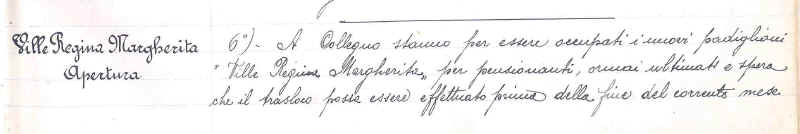 Ville Regina Margherita
Apertura
6°)- A Collegno stanno per essere occupati i nuovi padiglioni
"Ville Regina Margherita" per pensionanti, ormai ultimati e spera
che il trasloco possa essere effettuato prima della fine del corrente mese